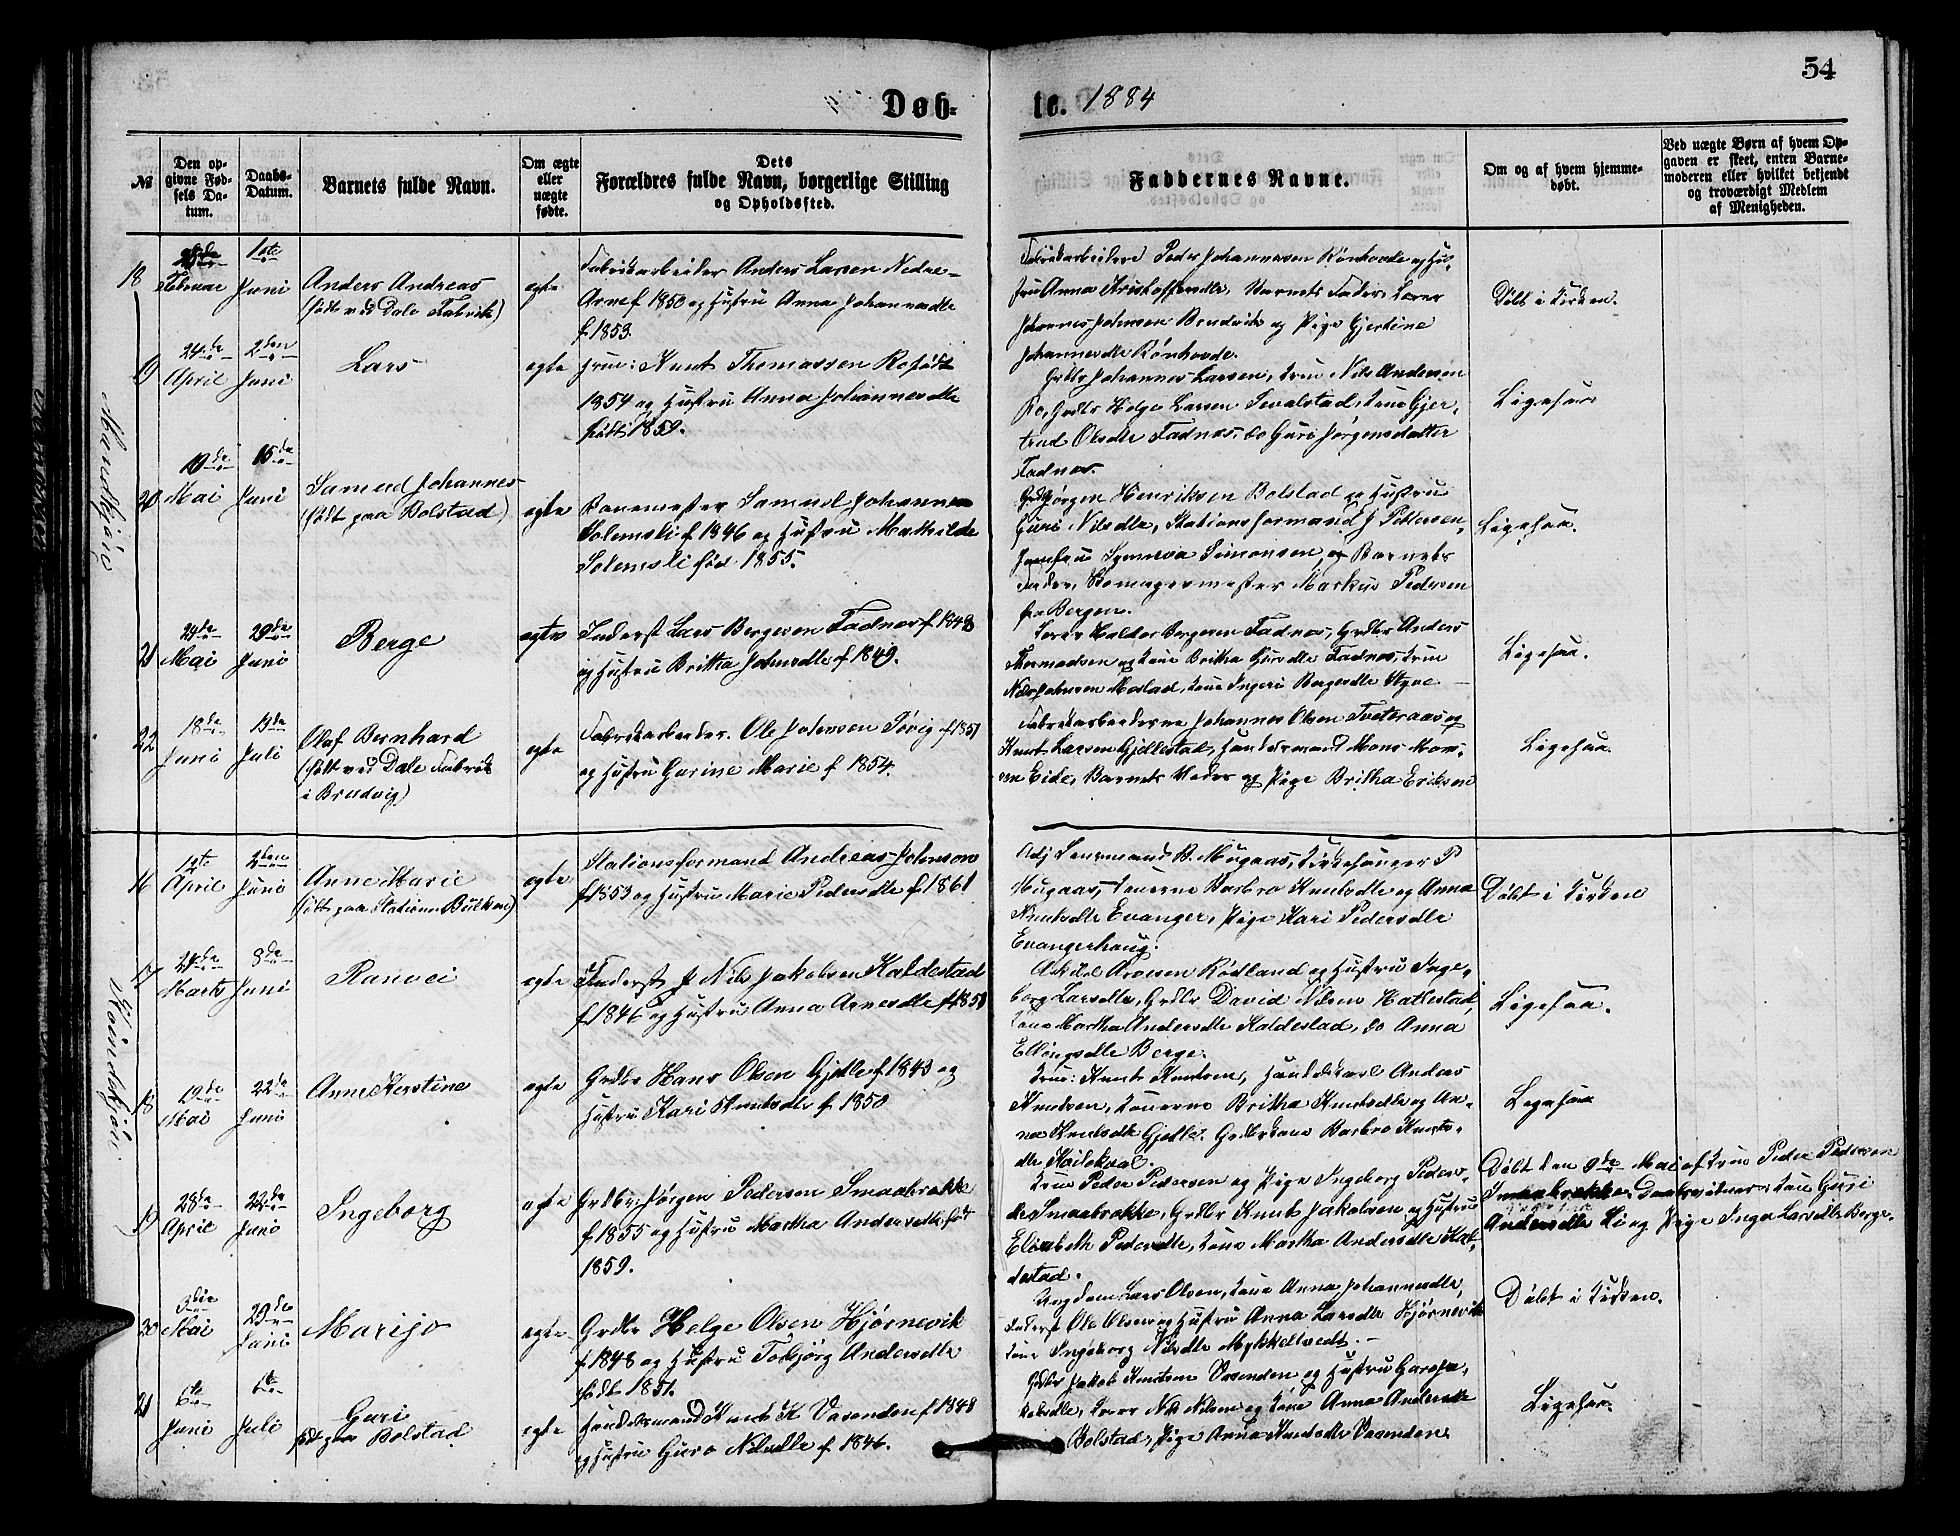 54
Døb-
te. 1884
№
Den op-
givne Fød-
sels Da-
tum.
Daabs-
Datum.
Barnets fulde Navn.
Om ægte
eller
uægte
fødte.
Dets
Forældres fulde Navn, borgerlige Stilling
og Opholdssted.
Faddernes Navne.
Om og af hvem hjemme-
døbt.
Ved uægte Børn af hvem Op-
gaven er skeet, enten Barne-
moderen eller hvilket bekjendt
og troværdigt Medlem
af Menigheden.
Mandkjøn
18
Februar
1ste
Juni
Anders Andreas
(født ved Dale Fabrik)
egte
Fabrikarbeider Anders Larsen Nedre-
Arne f 1850 og Hustru Anna Johannesdtr
f 1853.
Fabrikarbeidere Peder Johannessen Rønhovde og Hu-
stru Anna Kristoffersdtr, Barnets Fader,
Johannes Johnsen Brudvik og Pige Gjertine
Johannesdtr Rønhovde.
Døbt i Kirken.
19
24de
April
2den
Juni
Lars
egte
Knut Thomassen Ro født
1854 og Hustru Anna Johannesdtr
født 1859.
Grdbr Johannes Larsen, Nils Andersen
Ro, Grdbr Helge Larsen Tevalstad, Kone Gjer-
trud Olsdtr Fadnes, do Guri Jørgensdatter
Fadnes.
Ligesaa
20
10de
Mai
15de
Juni
Samuel Johannes
(født paa Bolstad)
egte
Banemester Samuel Johannes
Solemsli f 1846 og Hustru Mathilde
Solemsli fød 1855.
Jørgen Henriksen Bolstad og Hustru
Guri Nilsdtr, Stationsformand J Pettersen,
Jomfru Synneva Simonsen og Barnets
Fader, Skomagermester Markus Pedersen
fra Bergen.
Ligesaa.
21
24de
Mai
29de
Juni
Berge
egte
Inderst Lars Bergesen Fadnes f 1848
og Hustru Britha Johnsdtr f 1849.
Haldor Bergesen Fadnes, Grdbr Anders
og Kone Britha Fadnes,
Johnsen Mostad, Kone Ingeri Bergesdtr
Ligesaa.
22
18de
Juni
Juli
Olaf Bernhard
(født ved Dale Fabrik
i Brudvig)
egte
Fabrikarbeider Ole Johnsen f 1851
og Hustru Gurine Marie f 1854.
Fabrikarbeiderne Johannes Olsen Tveteraas og
Knut Larsen Gjellestad, Handelsmand Mons Mon-
sen Eide, Barnets Moder og Pige Britha Eriksen
Ligesaa.
Kvindekjøn
16
April
2den
Juni
Anne Marie
(født paa Station Bulken)
egte
Stationsformand Andreas Johnson
f 1853 og Hustru Marie Pedersdtr f 1861
Adj Lensmand B. Mugaas, Kirkesanger P
Mugaas, Konerne Barbro Knutsdtr og Anna
Knutsdtr Evanger, Pige Kari Pedersdtr
Evangerhaug.
Døbt i Kirken
17
Marts
8de
Juni
Ranvei
egte
Inderst Nils Jakobsen Kaldestad
f 1846 og Hustru Anna Arnesdtr f 1851
Rødland og Hustru Inge-
borg Larsdtr, Grdbr David Nilsen Hatlestad,
Kone Martha Andersdtr Kaldestad, do Anna
Ellingsdtr Berge.
Ligesaa.
18
19de
Mai
22de
Juni
Anne Kerstine
egte
Grdbr Hans Olsen Gjelle f 1843 og
Hustru Kari Knutsdtr f 1850
Knut Knutsen, Handelskarl Anders
Knutsen, Konerne Britha Knutsdtr og An-
na Knutsdtr Gjelle, Barbro Knuts-
dtr
Ligesaa
19
28de
April
22de
Juni
Ingeborg
egte
Grdbr Jørgen Pedersen Smaabrekke
f 1855 og Hustru Martha Andersdtr født
1859.
Peder Pedersen og Pige Ingeborg Peders-
dtr Smaabrekke, Grdbr Knut Jakobsen og Hustru
Elisabeth Pedersdtr, Kone Martha Andersdtr Kal-
destad.
Døbt den 9de Mai af Peder Pedersen
Smaabrekke. Daabsvidner: Kone Guri
Andersdtr og Pige Inga Larsdtr Berge.
20
3die
Mai
29de
Juni
Marijo
egte
Grdbr Helge Olsen Hjørnevik
f 1848 og Hustru Torbjørg Andersdtr
født 1851.
Ungdom Lars Olsen, Kone Anna Johannesdtr,
Inderst Ole Olsen og Hustru Anna Larsdtr Hjørnevik
Kone Ingeborg Nilsdtr Mykkeltvedt.
Døbt i Kirken.
21
6te
Juni
6te
Juli
Guri
født paa Bolstad
egte
Handelsmand Knut K Vasenden f 1848
og Hustru Guro Nilsdtr f 1846.
Grdbr Jakob Knutsen Vasenden og Hustru Guro Ja-
kobsdtr, Nils Nilsen og Kone Anna Andersdtr
Bolstad, Pige Anna Knutsdtr Vasenden.
Ligesaa.